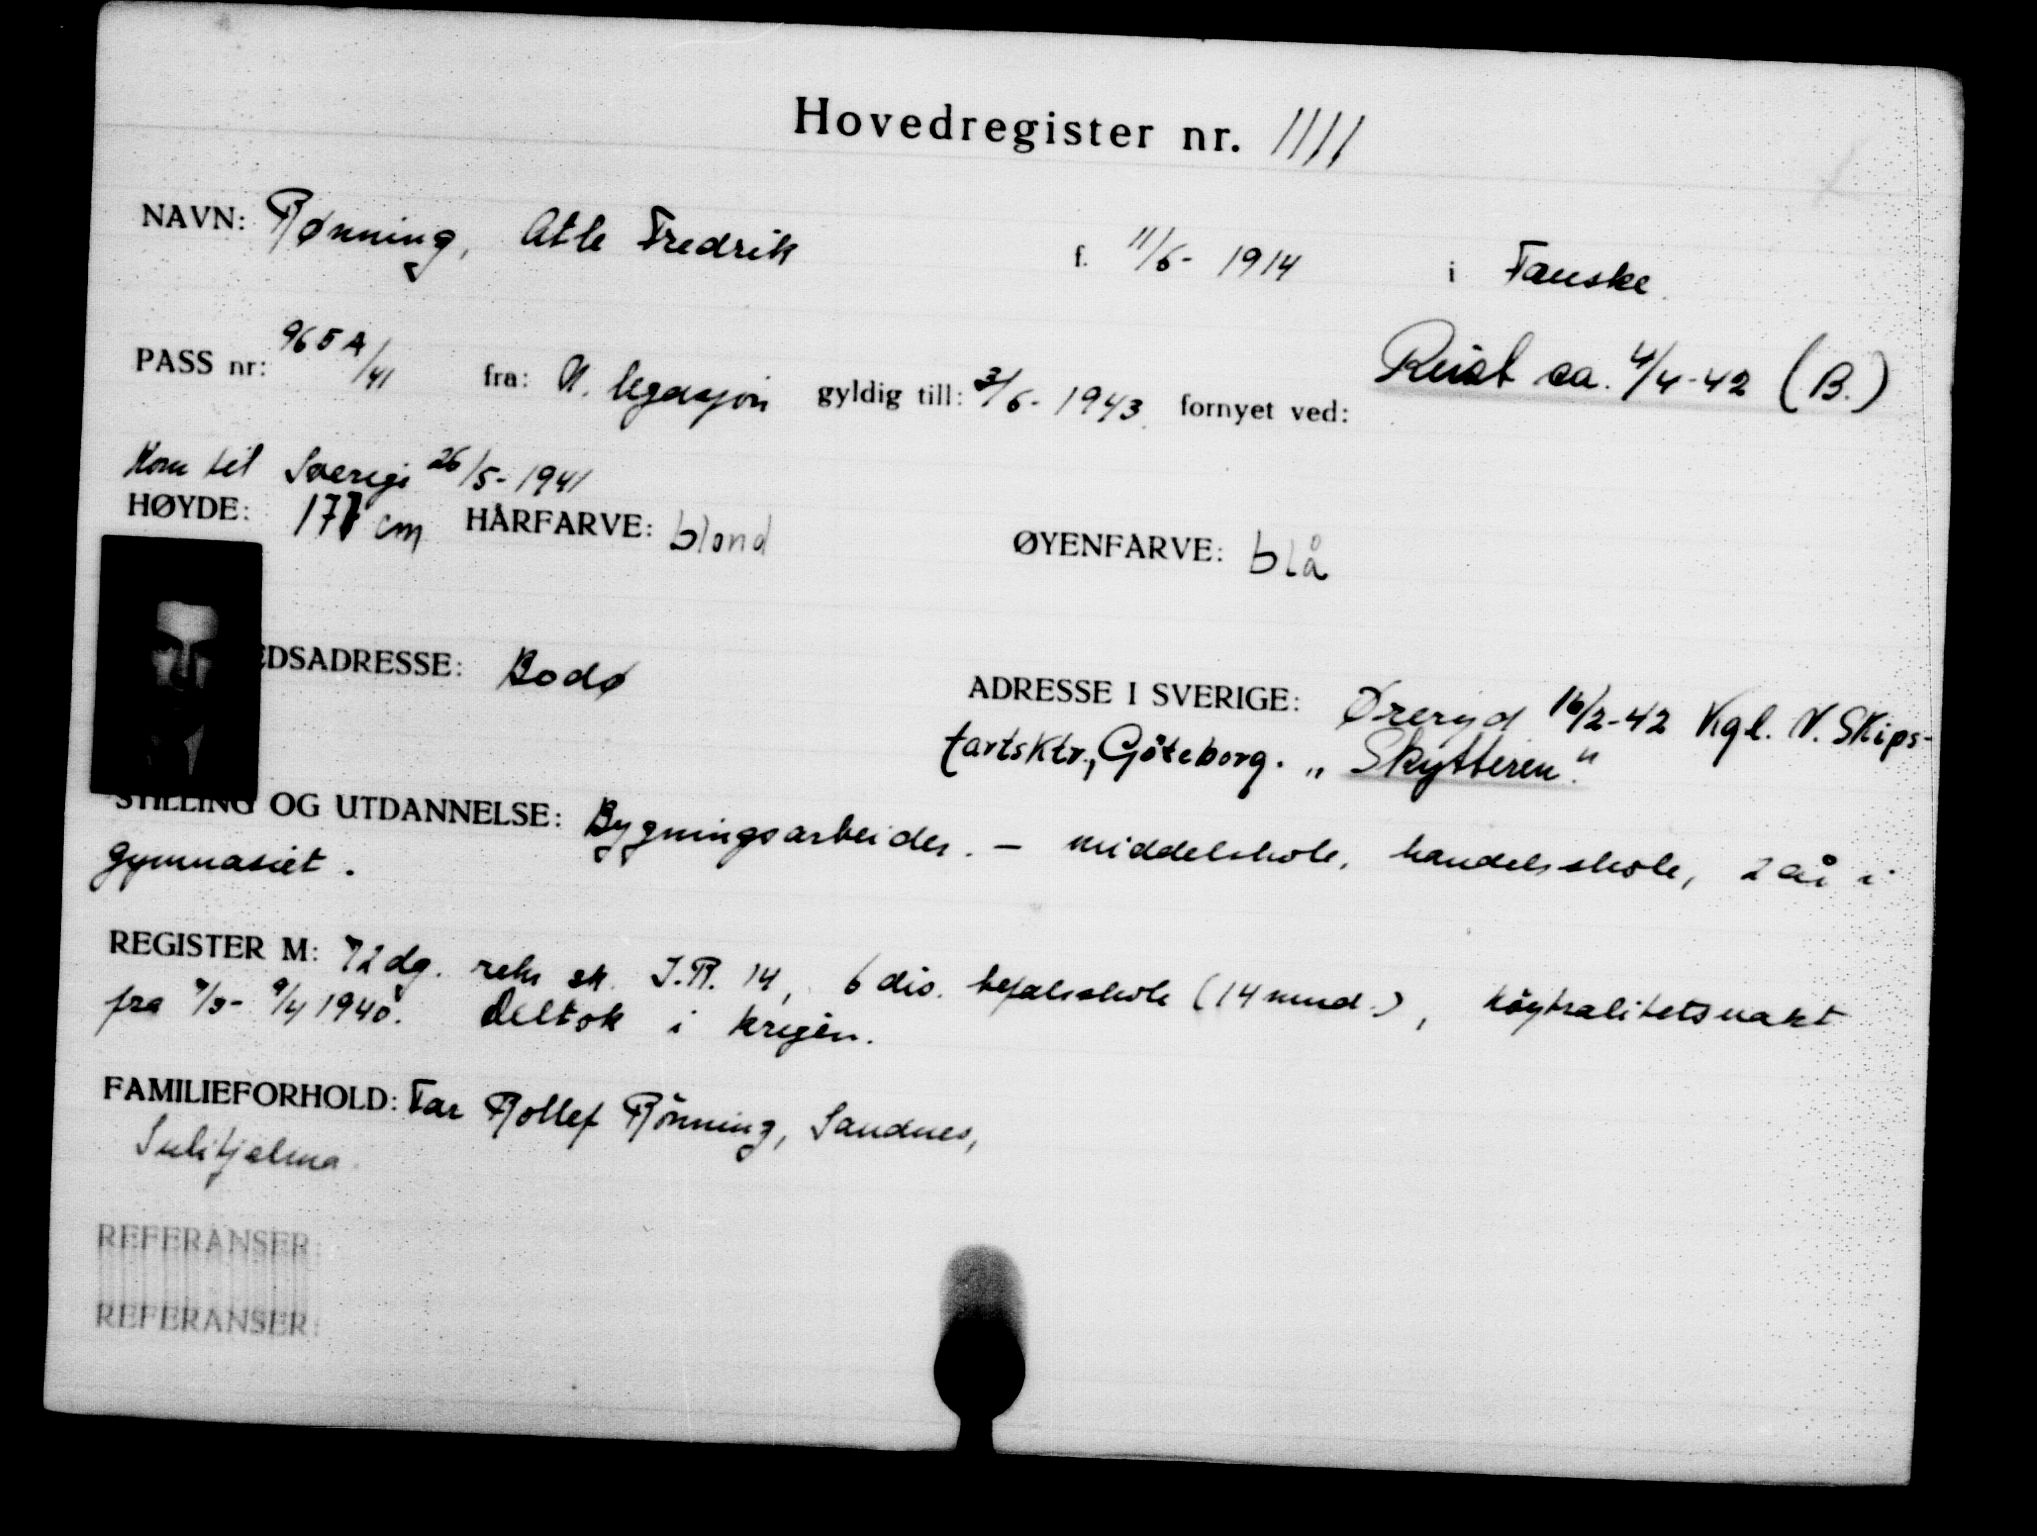 Hovedregister nr. 1111
NAVN: Rønning, Atle Fredrik f. 11/6- 1914 i Fauske.
PASS nr: 965A/41 fra: N. legasjon gyldig till: 3/6- 1943. fornyet ved: Reist ca. 4/4-42 (B.)
Kom til Sverige 26/5-1941
HØYDE: 177 cm HÅRFARVE: blond ØYENFARVE: blå
EDSADRESSE: Bodø
ADRESSE I SVERIGE: Øreryd 16/2-42 Kgl. N. Skips-
fartsktr., Göteborg. „Skytteren."
STILLING OG UTDANNELSE: Bygningsarbeider. – middelskole, handelsskole, 2 år i
gymnasiet.
REGISTER M: 72 dg. rekr sk. I.R. 14, 6 div. befalsskole (14 mnd.), nöytralitetsvakt
fra 9/4 1940. Deltok i krigen.
FAMILIEFORHOLD: Far Rollef Rönning, Sandnes,
Sulitjelma.
REFERANSER:
REFERANSER: